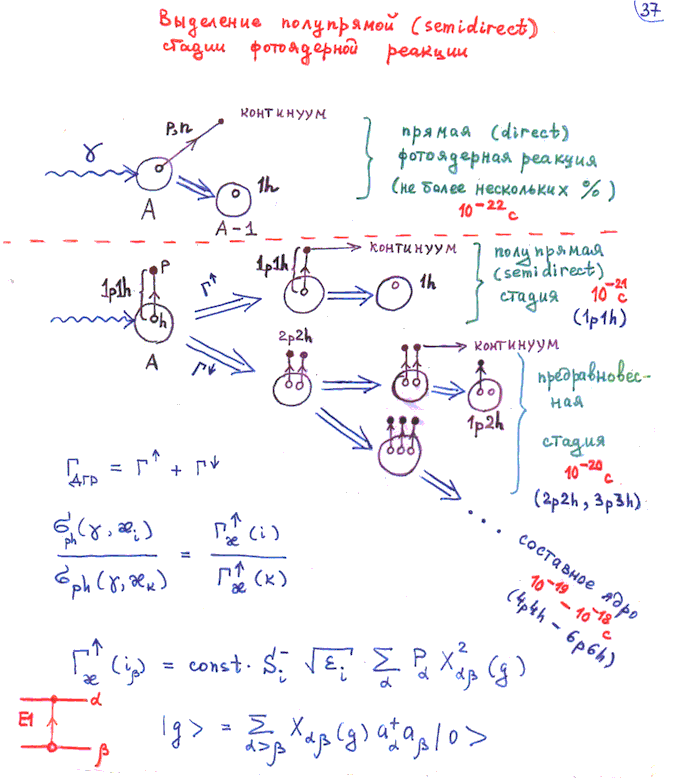 37
Выделение полупрямой (semidirect)
стадии фотоядерной реакции
континуум
p,n
γ
1h
A
A-1
прямая (direct)
фотоядерная реакция
(не более нескольких %)
10⁻²² с
континуум
p
1p1h
h
A
Γ↑
Γ↓
1p1h
1h
полупрямая
(semidirect)
стадия 10⁻²¹ с
(1p1h)
2p2h
континуум
1p2h
предравновес-
ная
стадия
10⁻²⁰ с
(2p2h, 3p3h)
... составное ядро
10⁻¹⁹ - 10⁻¹⁸ с
(4p4h - 6p6h)
Γ_ДГР = Γ↑ + Γ↓
σ_ph(γ,æ_i) / σ_ph(γ,æ_k) = Γ_æ↑(i) / Γ_æ↑(k)
Γ_æ↑(i_β) = const · S_i⁻ √ε_i Σ_α P_α X²_αβ(g)
E1
α
β
|g> = Σ_α>β X_αβ(g) a_α⁺ a_β |0>